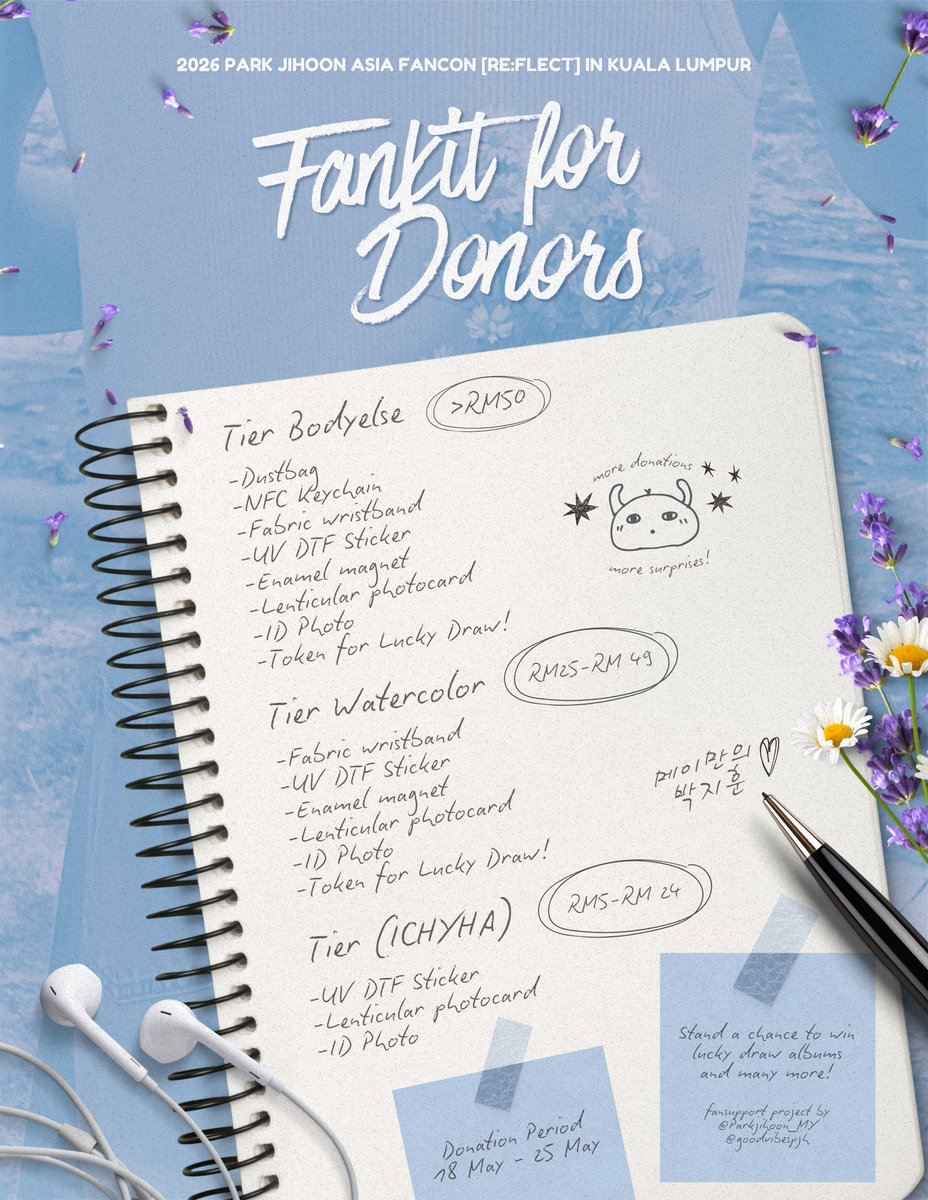 2026 PARK JIHOON ASIA FANCON [RE:FLECT] IN KUALA LUMPUR
Fankit for
Donors
Tier Bodyelse
>RM50
-Dustbag
-NFC Keychain
-Fabric wristband
-UV DTF Sticker
-Enamel magnet
-Lenticular photocard
-ID Photo
-Token for Lucky Draw!
more donations
more surprises!
Tier Watercolor
RM25-RM 49
-Fabric wristband
-UV DTF Sticker
-Enamel magnet
-Lenticular photocard
-ID Photo
-Token for Lucky Draw!
메이만의
박지훈
Tier (ICHYHA)
RM5-RM 24
-UV DTF Sticker
-Lenticular photocard
-ID Photo
Donation Period
18 May - 25 May
Stand a chance to win
lucky draw albums
and many more!
fansupport project by
@Parkjihoon_MY
@goodvibespjh